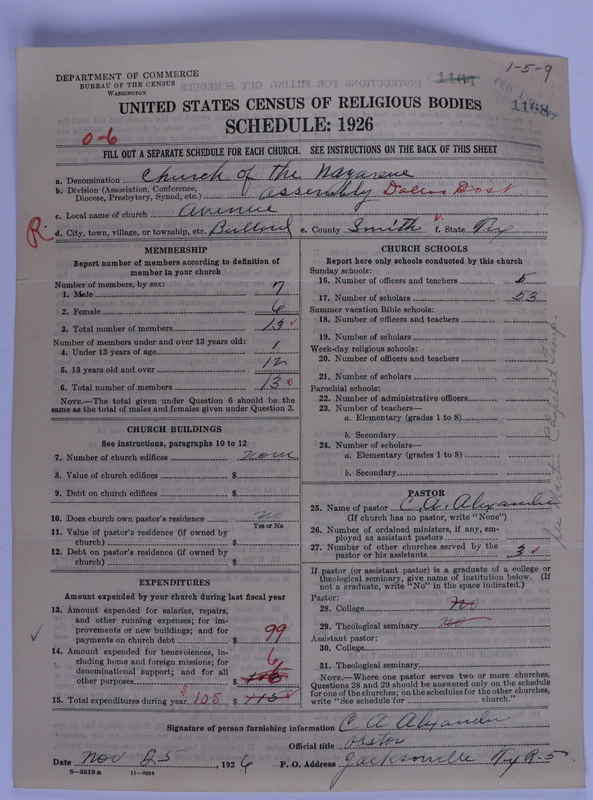 1-5-9
DEPARTMENT OF COMMERCE
BUREAU OF THE CENSUS
WASHINGTON
1164
1168
UNITED STATES CENSUS OF RELIGIOUS BODIES
SCHEDULE: 1926
0-6
FILL OUT A SEPARATE SCHEDULE FOR EACH CHURCH. SEE INSTRUCTIONS ON THE BACK OF THIS SHEET
a. Denomination Church of the Nazarene
b. Division (Association, Conference, Diocese, Presbytery, Synod, etc.) Assembly Dallas Dist
c. Local name of church Avenue
R. d. City, town, village, or township, etc. Bullard e. County Smith f. State Tex
MEMBERSHIP
Report number of members according to definition of
member in your church
Number of members, by sex:
1. Male 7
2. Female 6
3. Total number of members 13
Number of members under and over 13 years old:
4. Under 13 years of age 1
5. 13 years old and over 12
6. Total number of members 13
NOTE.—The total given under Question 6 should be
same as the total of males and females given under Question 3.
CHURCH BUILDINGS
See instructions, paragraphs 10 to 12
7. Number of church edifices none
8. Value of church edifices $
9. Debt on church edifices $
10. Does church own pastor's residence no
Yes or No
11. Value of pastor's residence (if owned by
church) $
12. Debt on pastor's residence (if owned by
church) $
EXPENDITURES
Amount expended by your church during last fiscal year
13. Amount expended for salaries, repairs,
and other running expenses; for im-
provements or new buildings; and for
payments on church debt $ 99
14. Amount expended for benevolences, in-
cluding home and foreign missions; for
denominational support; and for all
other purposes $ 6
15. Total expenditures during year $ 105 $ 115
CHURCH SCHOOLS
Report here only schools conducted by this church
Sunday schools:
16. Number of officers and teachers 5
17. Number of scholars 53
Summer vacation Bible schools:
18. Number of officers and teachers
19. Number of scholars
Week-day religious schools:
20. Number of officers and teachers
21. Number of scholars
Parochial schools:
22. Number of administrative officers
23. Number of teachers—
a. Elementary (grades 1 to 8)
b. Secondary
24. Number of scholars—
a. Elementary (grades 1 to 8)
b. Secondary
PASTOR
25. Name of pastor C. A. Alexander
(If church has no pastor, write "None")
26. Number of ordained ministers, if any, em-
ployed as assistant pastors
27. Number of other churches served by the
pastor or his assistants 3
If pastor (or assistant pastor) is a graduate of a college or
theological seminary, give name of institution below. (If
not a graduate, write "No" in the space indicated.)
Pastor:
28. College no
29. Theological seminary no
Assistant pastor:
30. College
31. Theological seminary
NOTE.—Where one pastor serves two or more churches,
Questions 28 and 29 should be answered only on the schedule
for one of the churches; on the schedules for the other churches,
write "See schedule for church."
Signature of person furnishing information C A Alexander
Official title Pastor
Date Nov 25, 1926 P. O. Address Jacksonville Tex R-5
6-5518a 11-9054